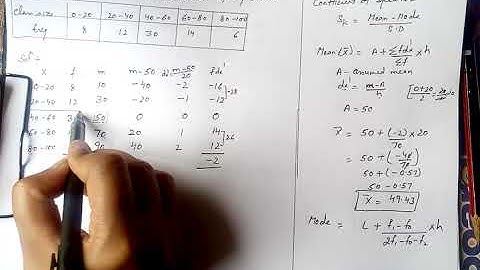 Class size | 0-20 | 20-40 | 40-60 | 60-80 | 80-100
freq | 8 | 12 | 30 | 14 | 6
x f m m-50 m-50/20 fde'
0-20 8 10 -40 -2 -16
20-40 12 30 -20 -1 -12 -28
40-60 3 50 0 0 0
60-80 70 20 1 14 26
80-100 90 40 2 12
-2
Coefficient of
Sk = Mean-Mode
S.D
Mean(x̄) = A + Σfde' × h
Σf
A - assumed mean
de' = m-A
h
A = 50
x̄ = 50 + (-2) × 20
70
= 50 +
70
50 + (-0.57)
50 - 0.57
x̄ = 49.43
Mode = L + f1-f0 × h
2f1-f0-f2